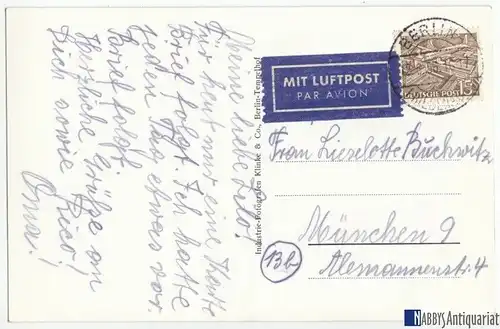 Meine liebe Lilo!
Für heut nur eine Karte
Brief folgt. Ich hatte
jeden Tag etwas vor.
Brief folgt.
Herzliche Grüße an
Dich sowie Rico!
Oma!
Industrie-Fotografen Klinke & Co., Berlin-Tempelhof
MIT LUFTPOST
PAR AVION
BERLIN
DEUTSCHE POST
15
Frau Lieselotte Buchwitz
München 9
13b
Alemannenstr. 4
NABBYSAntiquariat